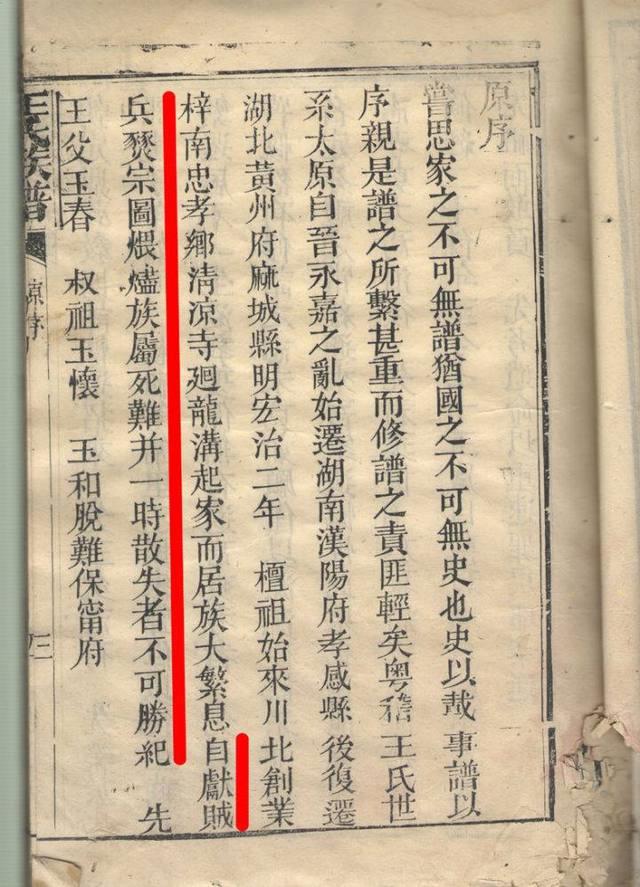 原序
嘗思家之不可無譜猶國之不可無史也史以載事譜以
序親是譜之所繫甚重而修譜之責匪輕矣粵稽王氏世
系太原自晉永嘉之亂始遷湖南漢陽府孝感縣後復遷
湖北黃州府麻城縣明宏治二年 檀祖始來川北創業
梓南忠孝鄉清凉寺廻龍溝起家而居族大繁息自獻賊
兵燹宗圖煨燼族屬死難并一時散失者不可勝紀 先
王父玉春 叔祖玉懷 玉和脫難保甯府
王氏族譜 原序 三